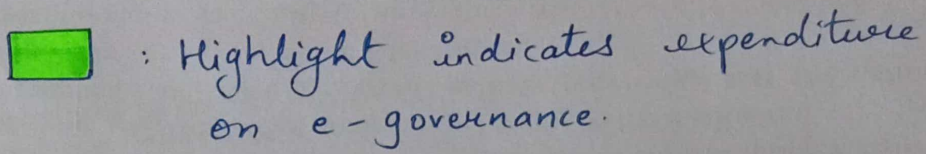 : Highlight indicates expenditure
on e-governance.